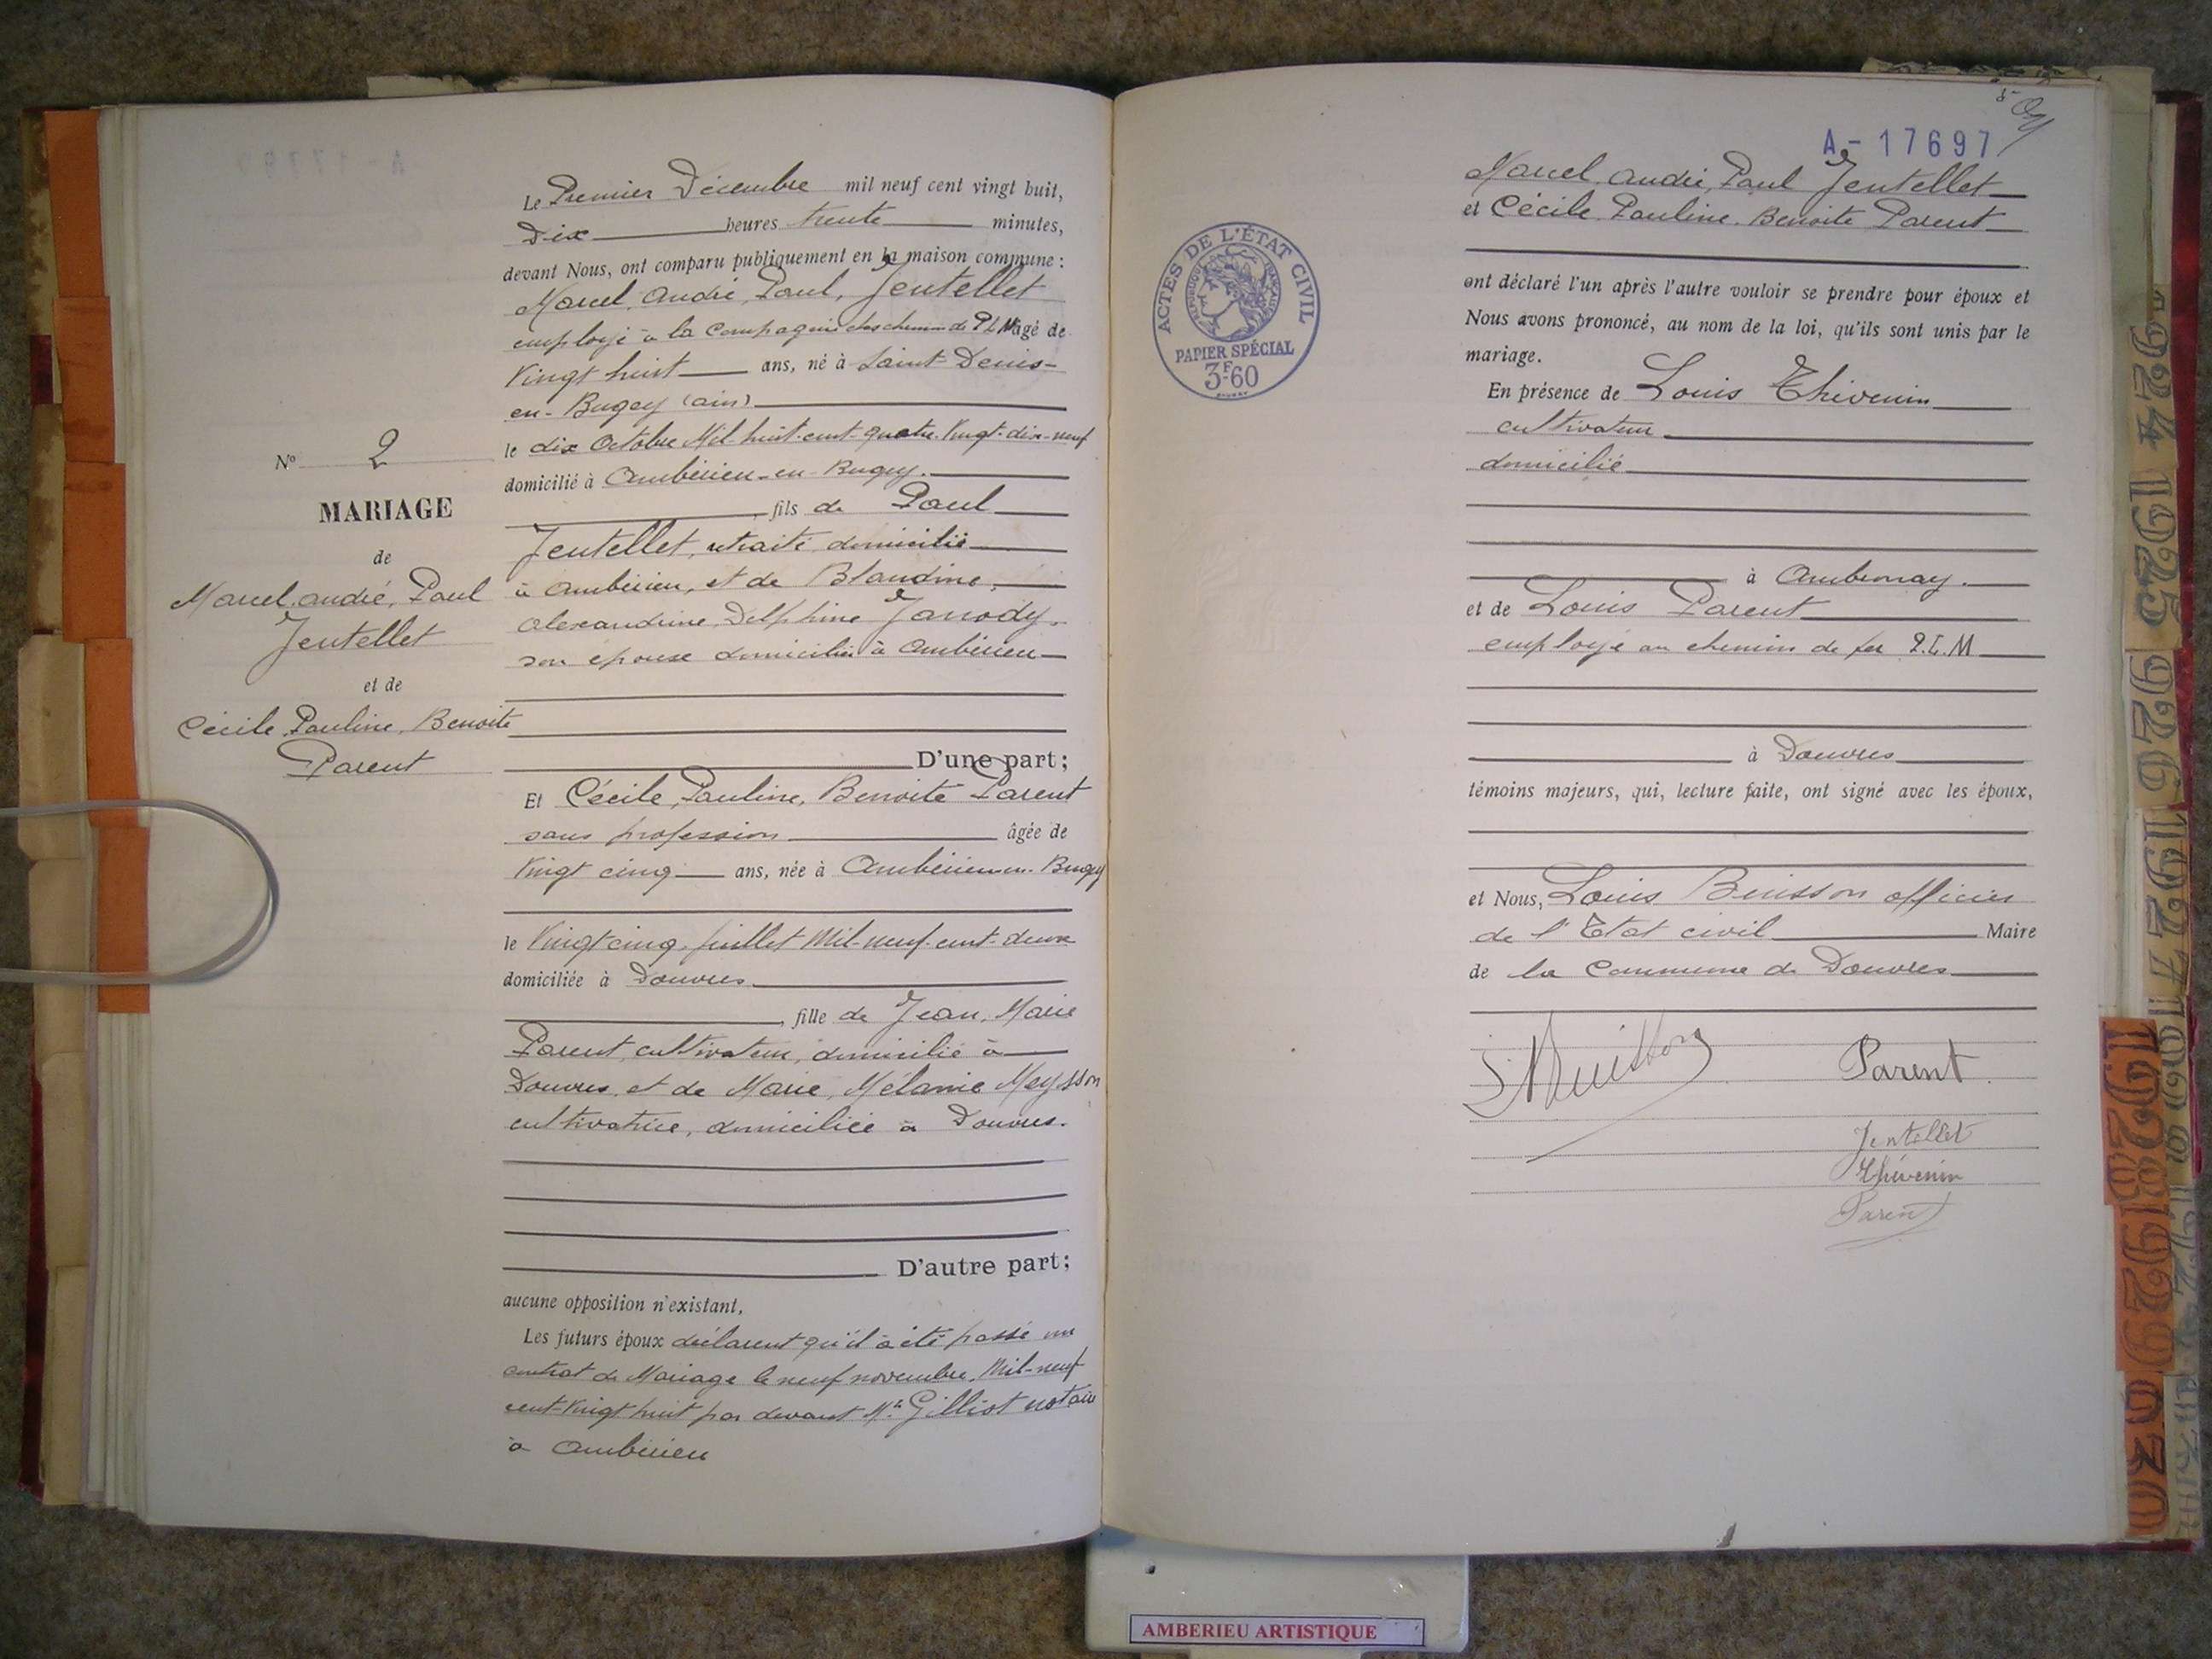 Le Premier Décembre mil neuf cent vingt huit,
Dix heures trente minutes,
devant Nous, ont comparu publiquement en la maison commune :
Marcel, André, Paul, Jentellet
employé à la Compagnie des chemin de P L M âgé de
Vingt huit ans, né à Saint-Denis-
en-Bugey (ain)
le dix Octobre Mil-huit-cent-quatre-Vingt-dix-neuf
domicilié à Ambérieu-en-Bugey.
fils de Paul
Jentellet, retraité domicilié
à Ambérieu, et de Blandine,
Alexandrine, Delphine Janody.
son épouse domiciliée à Ambérieu
N° 2
MARIAGE
de
Marcel, André, Paul
Jentellet
et de
Cécile, Pauline, Benoite
Parent
D'une part ;
Et Cécile, Pauline, Benoite Parent
sans profession âgée de
Vingt cinq ans, née à Ambérieu-en-Bugey
le Vingt cinq juillet Mil-neuf-cent-deux
domiciliée à Douvres
, fille de Jean, Marie
Parent, cultivateur, domicilié à
Douvres, et de Marie, Mélanie Meysson
cultivatrice, domiciliée à Douvres.
D'autre part ;
aucune opposition n'existant,
Les futurs époux déclarent qu'il à été passé un
contrat de Mariage le neuf novembre, Mil-neuf
cent-Vingt huit par devant Me Gilliot notaire
à Ambérieu
A-17697
Marcel, André, Paul Jentellet
et Cécile, Pauline, Benoite Parent
ont déclaré l'un après l'autre vouloir se prendre pour époux et
Nous avons prononcé, au nom de la loi, qu'ils sont unis par le
mariage.
En présence de Louis Thivenin
cultivateur
domicilié
à Ambronay.
et de Louis Parent
employé au chemin de fer P.L.M
à Douvres
témoins majeurs, qui, lecture faite, ont signé avec les époux,
et Nous, Louis Buisson officier
de l'Etat civil Maire
de la Commune de Douvres
Parent
Jentellet
Thévenin
Parent
ACTES DE L'ÉTAT CIVIL
RÉPUBLIQUE FRANÇAISE
PAPIER SPÉCIAL
3F60
1924
1925
1926
1927
1928
1929
1930
AMBERIEU ARTISTIQUE